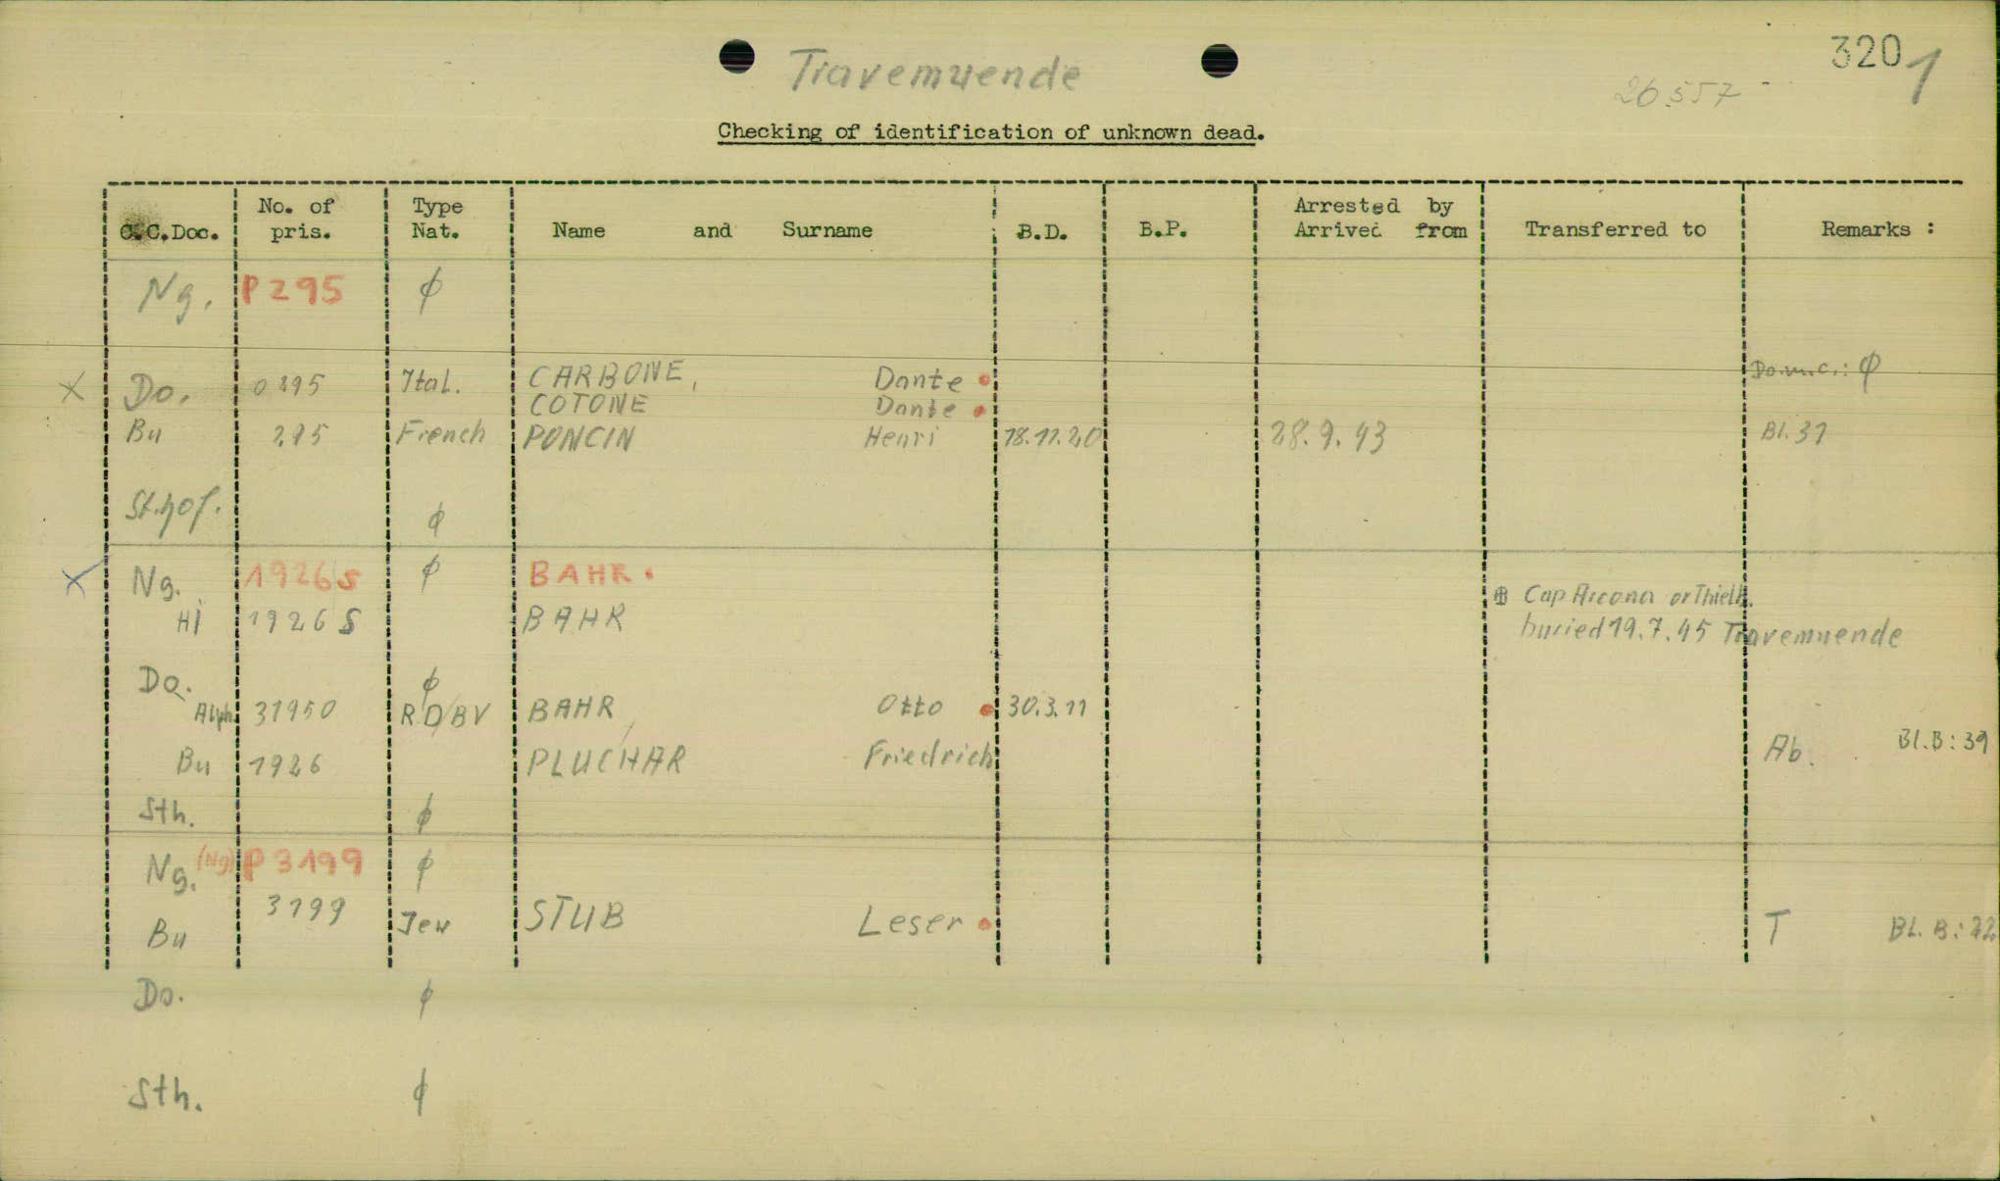 Travemuende
320 1
26.557 -
Checking of identification of unknown dead.
C.C.Doc. No. of pris. Type Nat. Name and Surname B.D. B.P. Arrested by Arrived from Transferred to Remarks :
Ng. P295 ϕ
X Do. 0295 Ital. CARBONE, Dante Do.m.c.: ϕ
COTONE Dante
Bu 295 French PONCIN Henri 18.11.20 28.9.43 Bl.31
St.hof. ϕ
X Ng. 1926 S ϕ BAHR.
Hi 1926 S BAHR ⊕ Cap Arcona or Thielb.
buried 19.7.45 Travemuende
Do. ϕ
Alph. 31950 RD/BV BAHR, Otto 30.3.11
Bu 1926 PLUCHAR Friedrich Ab. Bl.B:39
Sth. ϕ
Ng. (Ng) P3199 ϕ
Bu 3199 Jew STUB Leser T Bl. B:
Do. ϕ
Sth. ϕ